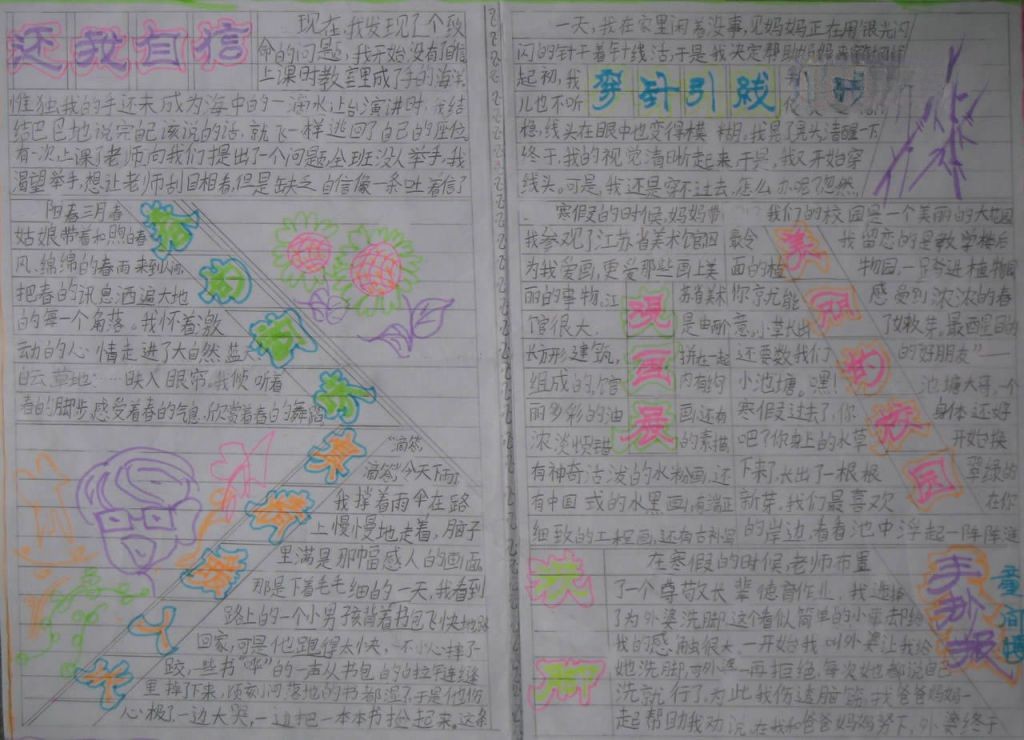 还我自信
现在,我发现了个致
命的问题,我开始没有自信
上课时教室里成了手的海洋
惟独我的手还未成为海中的一滴水让台演讲时,我结
结巴巴地说完自己该说的话,就飞一样逃回了自己的座位
有一次上课了老师向我们提出了一个问题,全班没人举手,我
渴望举手,想让老师刮目相看,但是缺乏自信像一条吐着信子
阳春三月春
姑娘带着和煦的春
风、绵绵的春雨来到人间
把春的讯息洒遍大地
的每一个角落。我怀着激
动的心情走进了大自然蓝天
白云草地……映入眼帘。我倾听着
春的脚步,感受着春的气息,欣赏着春的舞蹈
春的
“滴答,
滴答”今天下雨
我撑着雨伞在路
上慢慢地走着,脑子
里满是那幅感人的画面
那是下着毛毛细的一天,我看到
路上的一个小男孩背着书包飞快地跑
回家,可是他跑得太快,不小心摔了一
跤,些书“哗”的一声从书包的的拉链缝
里掉下来,顷刻间落地的书都湿了,于是他伤
心极了一边大哭,一边把一本本书捡起来。这条
一天,我在家里闲着没事,见妈妈正在用银光闪
闪的针干着针线活,于是我决定帮助妈妈
起初,我
穿针引线
儿也不听
稳,线头在眼中也变得模糊,我晃了晃头清醒一下
终于,我的视觉清晰起来,于是,我又开始穿
线头。可是,我还是穿不过去,怎么办呢?忽然
寒假的时候,妈妈带
我参观了江苏省美术馆因
为我爱画,更爱那些画上美
丽的事物,江苏省美术
馆很大,是由两个
长方形建筑,拼在一起
组成的,馆内有绚
丽多彩的油画还有
浓淡恰错的素描
有神奇活泼的水粉画,还
有中国式的水墨画,有端正
细致的工程画,还有古朴
观画展
我们的校园是一个美丽的大花园
最令我留恋的是教学楼后
面的植物园,一踏进植物园
你就能感受到浓浓的春
意,小草长出了嫩芽,最醒目的
还要数我们的好朋友”——
小池塘。嘿!池塘大哥,一个
寒假过去了,你身体还好
吧?你身上的水草开始换
下来了,长出了一根根翠绿的
新芽,我们最喜欢在你
的岸边,看着池中浮起一阵阵涟
美丽的校园
洗脚
在寒假的时候,老师布置
了一个尊敬长辈德育作业,我选择
了为外婆洗脚,这个看似简单的小事却给
我的感触很大。一开始我叫外婆让我给
她洗脚,外婆一再拒绝,每次她都说自己
洗就行了,为此我伤透脑筋,找爸爸妈妈一
起帮助我劝说,在我和爸爸妈妈努力下,外婆终于
手抄报